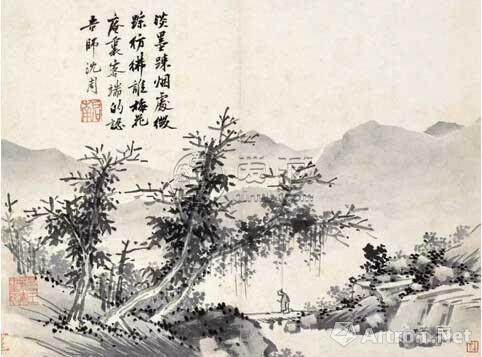 淡墨疎烟處微
踪仿彿誰梅花
庵裏客端的認
吾師沈周
Artron.Net